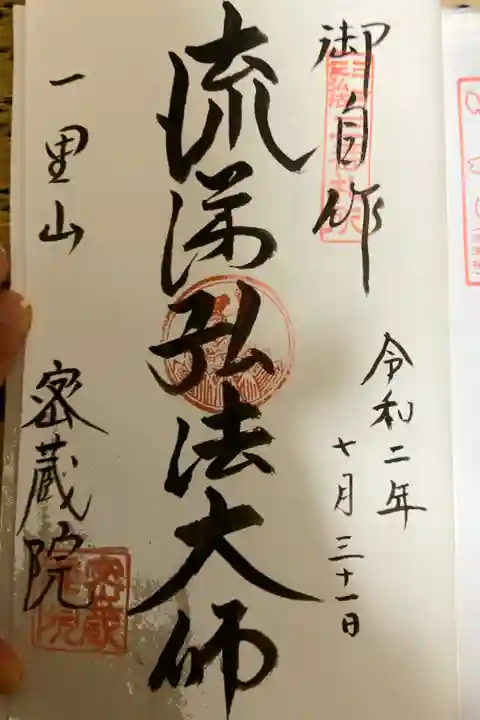 御自作
令和二年
七月三十一日
流涕弘法大師
一里山
密蔵院
密蔵
院